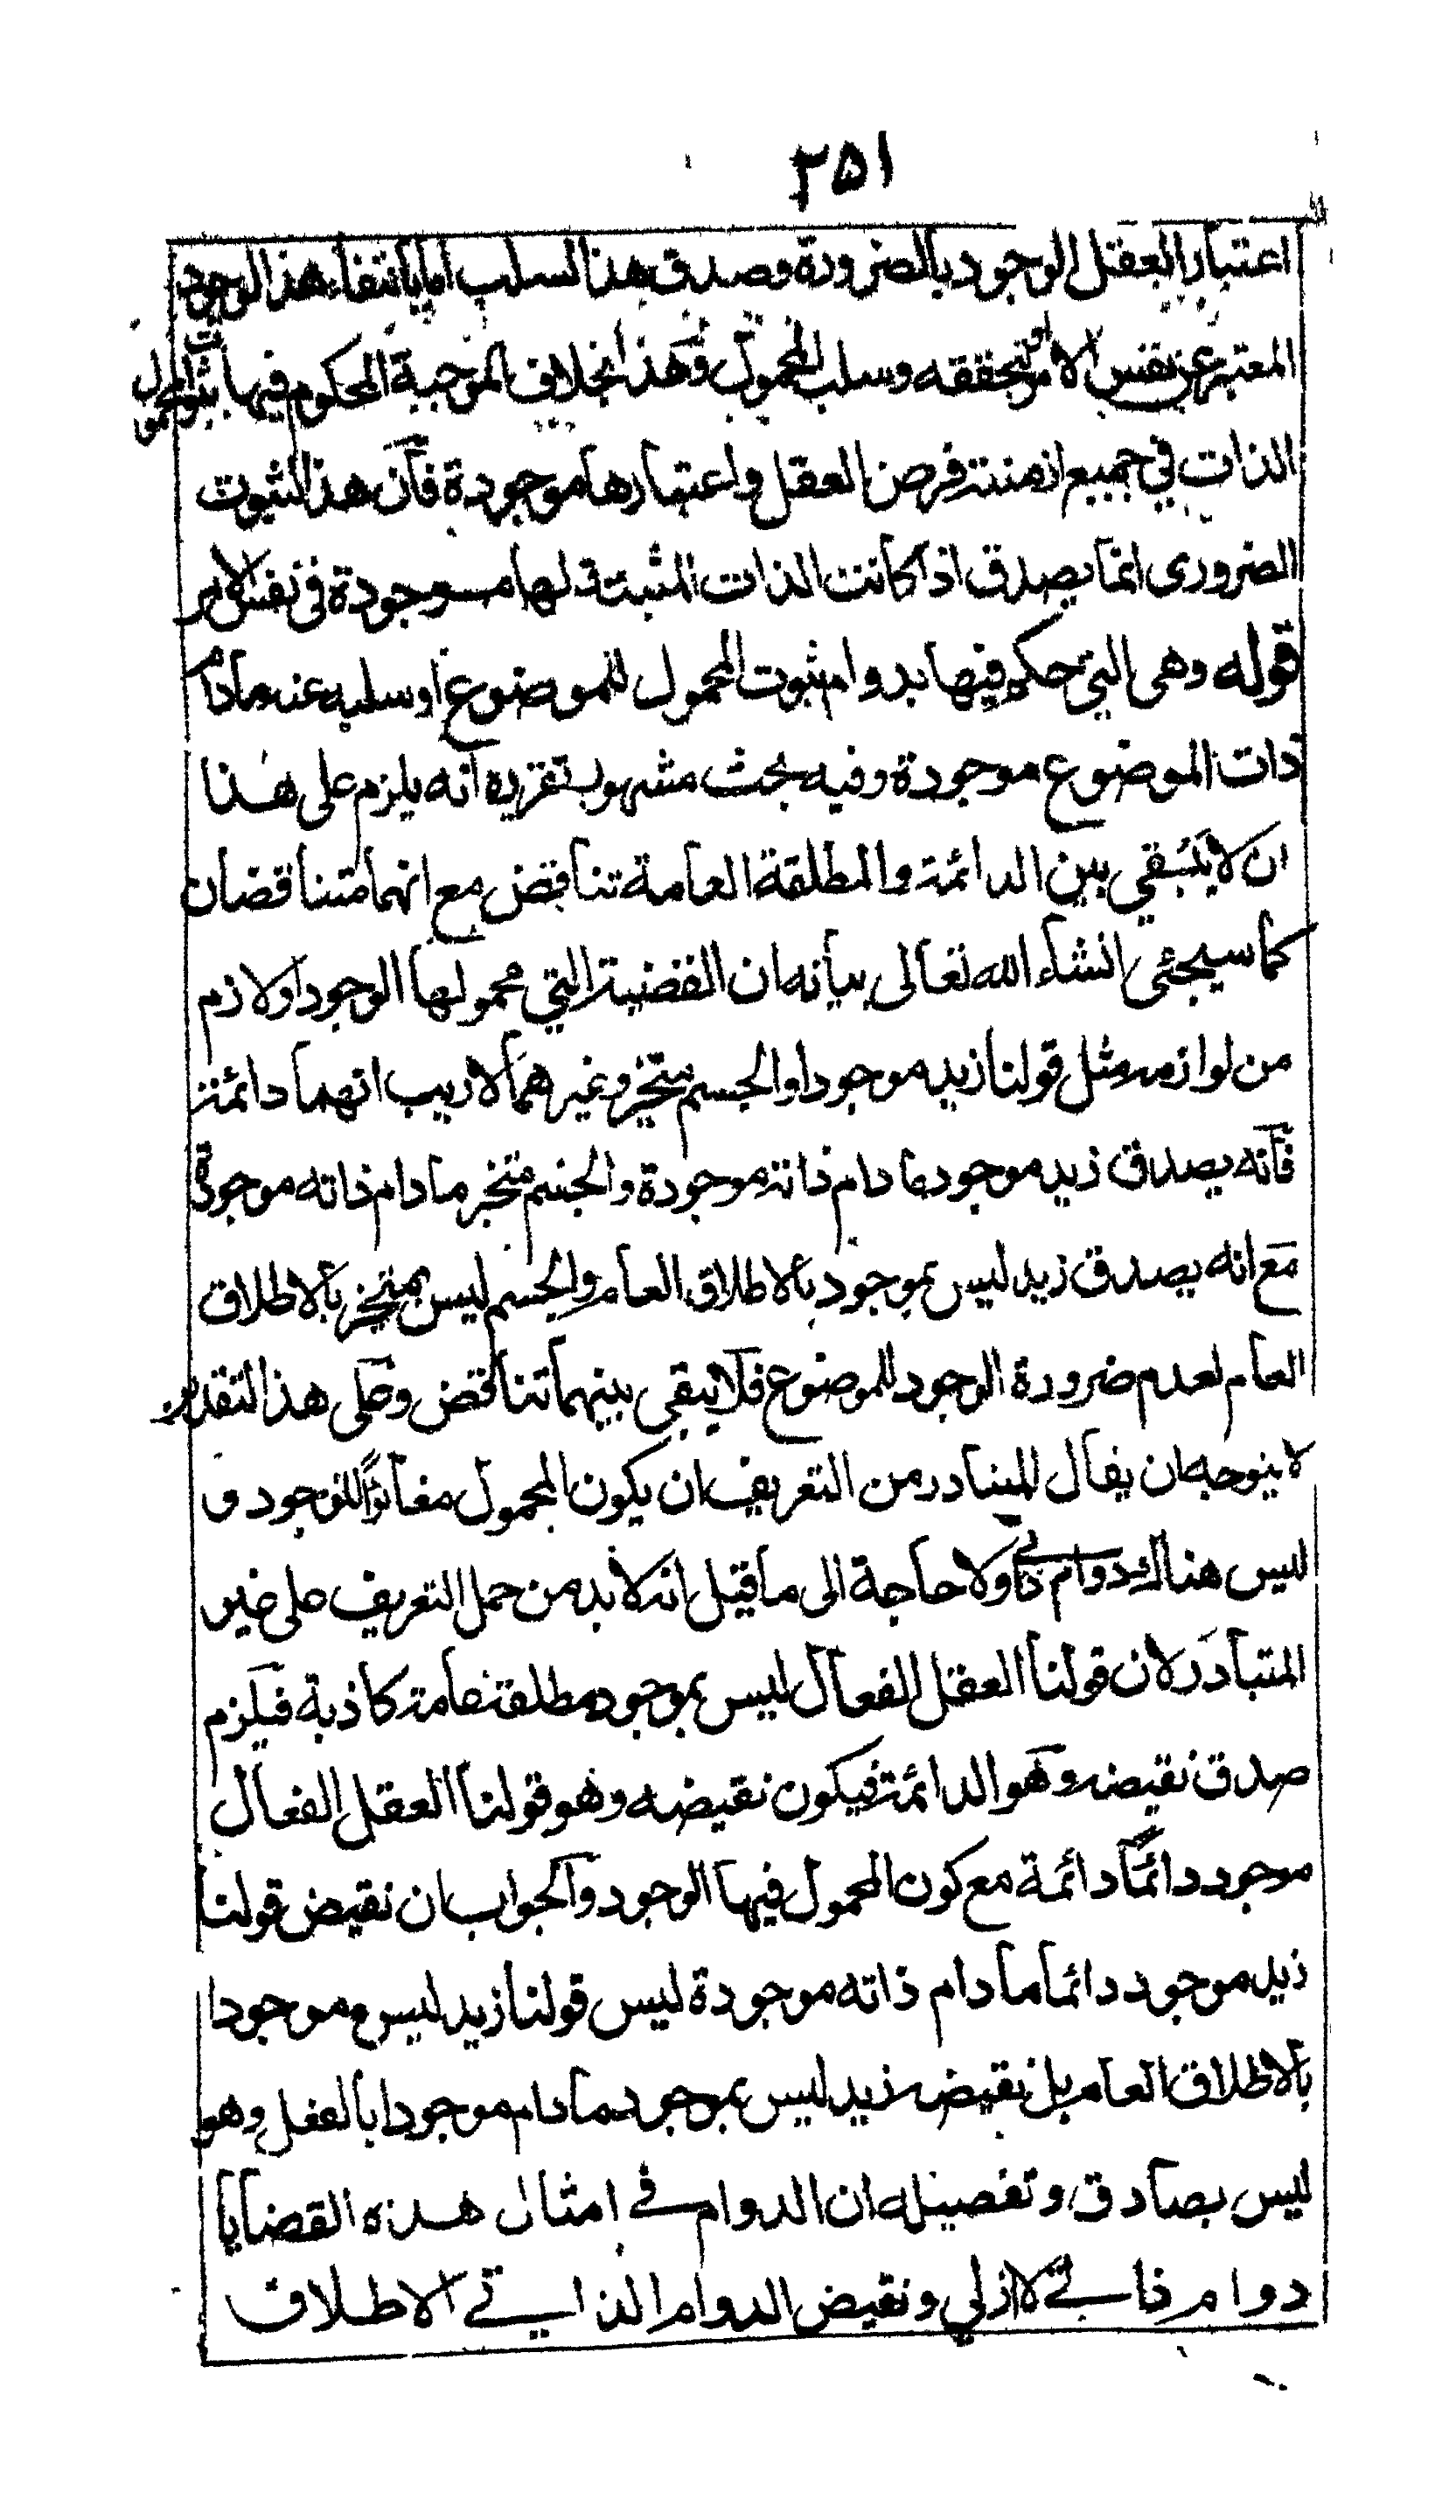 ٢٥١
اعتبار العقل الوجود بالضرورة وصدق هذا السلب اما بانتفاء هذا الوجود
المعتبر عن نفس الامر وتحققه وسلب المحمول وهذا بخلاف الموجبة المحكوم فيها بثبوت المحمول
الذات في جميع ازمنته فرض العقل واعتبارها موجودة فان هذا الثبوت
الضرورى انما يصدق اذا كانت الذات المثبتة لها موجودة في نفس الامر
قوله وهى التي حكم فيها بدوام ثبوت المحمول للموضوع او سلبه عنه مادام
ذات الموضوع موجودة وفيه بحث مشهور تقريره انه يلزم على هذا
ان لا يبقي بين الدائمة والمطلقة العامة تناقض مع انهما متناقضان
كما سيجئي انشاء الله تعالى بيانه ان القضية التي محمولها الوجود او لازم
من لوازمه مثل قولنا زيد موجود او الجسم متحيز وغيرهما لا ريب انهما دائمة
فانه يصدق زيد موجود ما دام ذاته موجودة والجسم متحيز ما دام ذاته موجودة
مع انه يصدق زيد ليس بموجود بالاطلاق العام والجسم ليس بمتحيز بالاطلاق
العام لعدم ضرورة الوجود للموضوع فلا يبقى بينهما تناقض وعلى هذا التقدير
لا يتوجه ان يقال المتبادر من التعريف ان يكون المحمول مغائرًا للوجود و
ليس هناك دوام ذاتي ولا حاجة الى ما قيل انه لا بد من حمل التعريف على غير
المتبادر لان قولنا العقل الفعال ليس بموجود مطلقة عامة كاذبة فيلزم
صدق نقيضه وهو الدائمة فيكون نقيضه وهو قولنا العقل الفعال
موجود دائمًا دائمة مع كون المحمول فيها الوجود والجواب ان نقيض قولنا
زيد موجود دائما ما دام ذاته موجودة ليس قولنا زيد ليس موجودا
بالاطلاق العام بل نقيضه زيد ليس بموجود ما دام موجودا بالفعل وهو
ليس بصادق وتفصيله ان الدوام في امثال هذه القضايا
دوام ذاتي لا ازلي ونقيض الدوام الذاتي الاطلاق